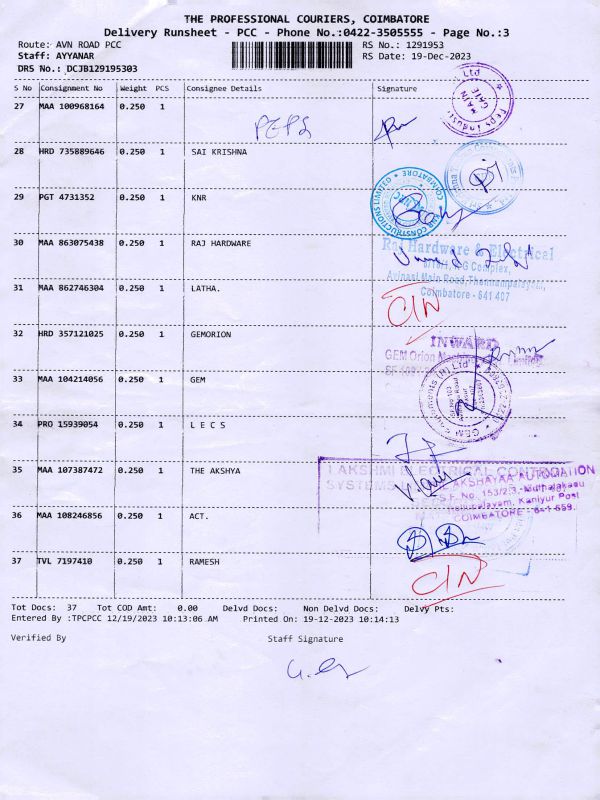 THE PROFESSIONAL COURIERS, COIMBATORE
Delivery Runsheet - PCC - Phone No.:0422-3505555 - Page No.:3
Route: AVN ROAD PCC RS No.: 1291953
Staff: AYYANAR RS Date: 19-Dec-2023
DRS No.: DCJB129195303
S No Consignment No Weight PCS Consignee Details Signature
27 MAA 100968164 0.250 1 PEPS
MAIN GATE
28 HRD 735889646 0.250 1 SAI KRISHNA
29 PGT 4731352 0.250 1 KNR
30 MAA 863075438 0.250 1 RAJ HARDWARE
Raj Hardware & Electrical
Avinasi Main Road, Thennampalayam,
Coimbatore - 641 407
31 MAA 862746304 0.250 1 LATHA.
C/N
32 HRD 357121025 0.250 1 GEMORION
INWARD
GEM Orion
33 MAA 104214056 0.250 1 GEM
34 PRO 15939054 0.250 1 L E C S
35 MAA 107387472 0.250 1 THE AKSHYA
LAKSHMI ELECTRICAL CONTROL
SYSTEMS
LAKSHAYAA AUTOMATION
S.F. No. 153/2,3, Muthalakadu
Kaniyur Post
COIMBATORE - 641 659.
36 MAA 108246856 0.250 1 ACT.
37 TVL 7197410 0.250 1 RAMESH
C/N
Tot Docs: 37 Tot COD Amt: 0.00 Delvd Docs: Non Delvd Docs: Delvy Pts:
Entered By :TPCPCC 12/19/2023 10:13:06 AM Printed On: 19-12-2023 10:14:13
Verified By Staff Signature